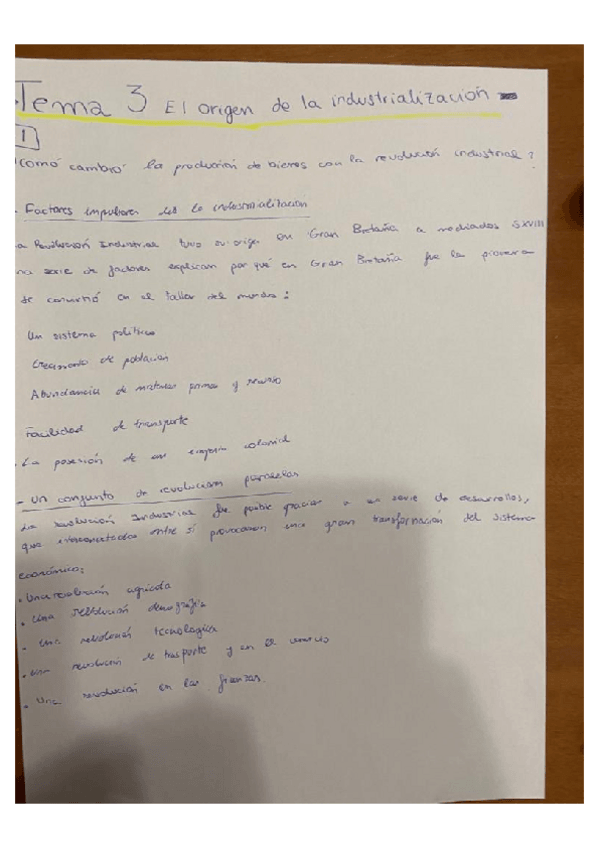 Tema 3 El origen de la industrialización
1
¿Comó cambió la producción de bienes con la revolución industrial?
- Factores impulsores de la industrialización
a Revolución Industrial tuvo su origen en Gran Bretaña a mediados SXVIII
na serie de factores explican por qué en Gran Bretaña fue la pionera
se convirtió en el taller del mundo:
Un sistema político
Crecimiento de población
Abundancia de materias primas y
Facilidad de transporte
- La posesión de un imperio colonial
- Un conjunto de revoluciones paralelas
La revolución Industrial fue posible gracias a un serie de desarrollos,
que interconectados entre sí provocaron una gran transformación del sistema
económico:
• Una revolución agrícola
• Una revolución demografía
• Una revolución tecnologica
• Una revolución de trasporte y en el
• Una revolución en las finanzas.